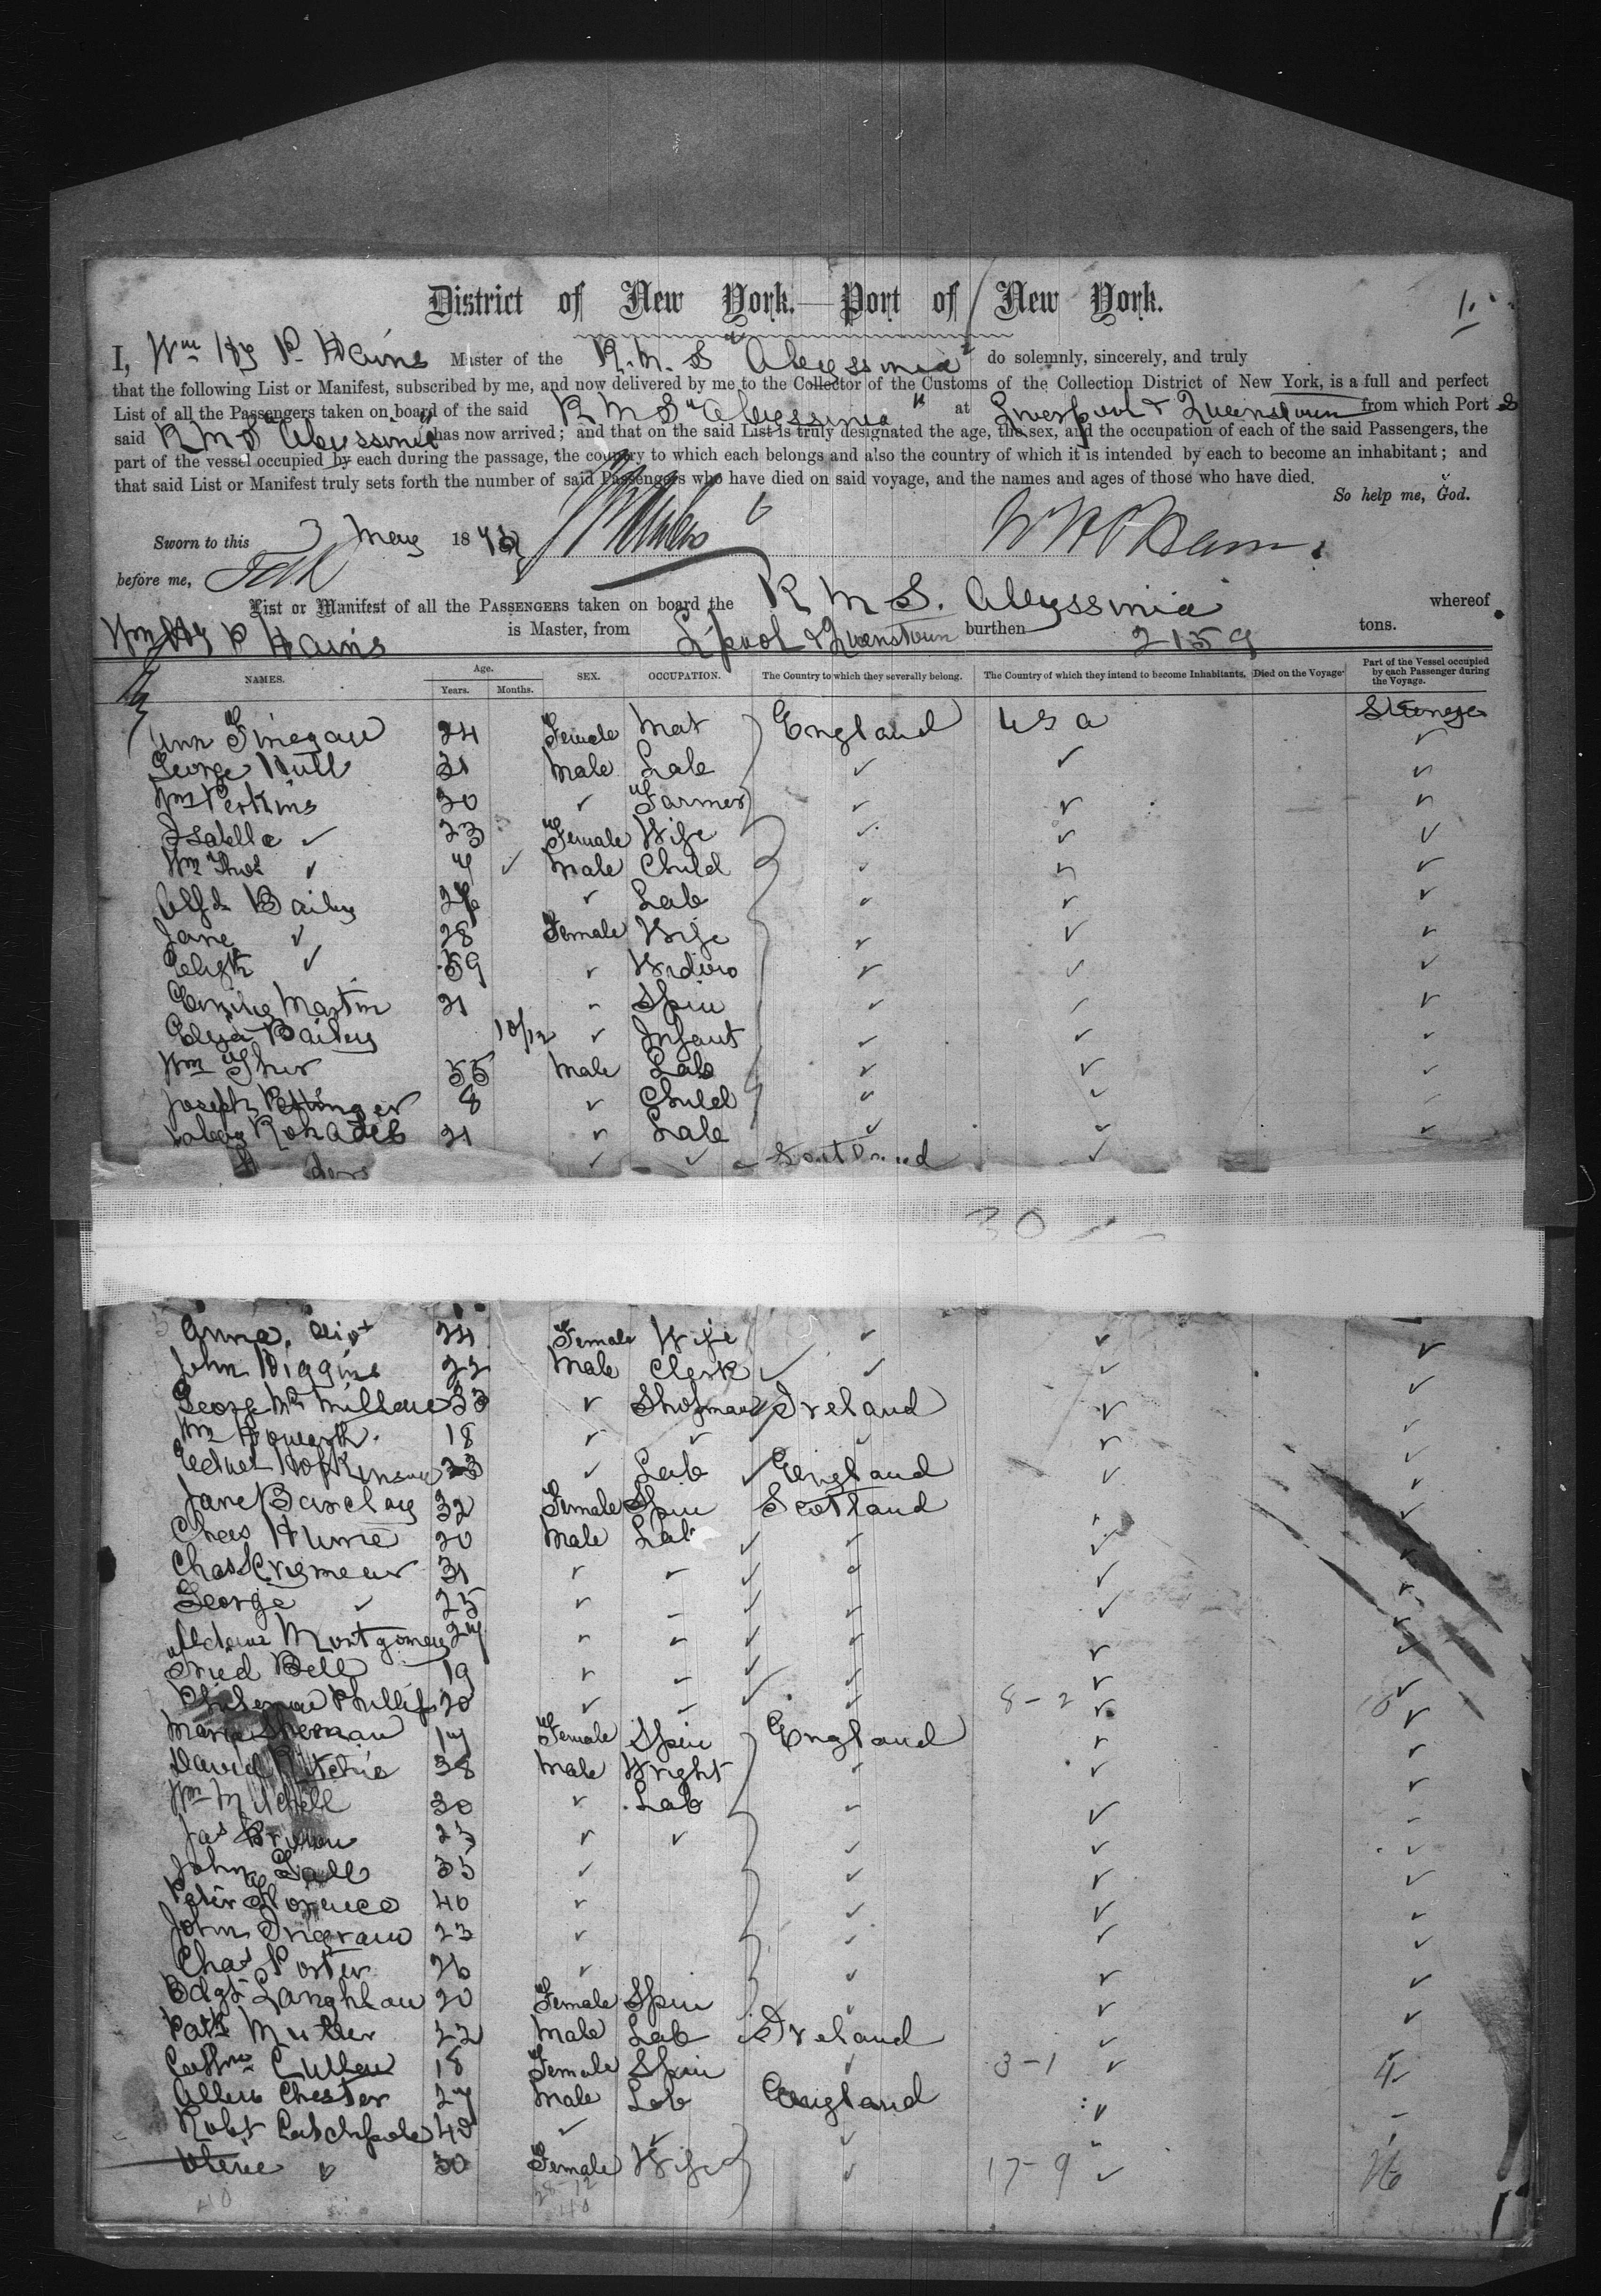 District of New York.—Port of New York.
1.
I, Wm Hy P. Hains Master of the R.M.S "Abyssinia" do solemnly, sincerely, and truly
that the following List or Manifest, subscribed by me, and now delivered by me to the Collector of the Customs of the Collection District of New York, is a full and perfect
List of all the Passengers taken on board of the said RMS "Abyssinia" at Liverpool & Queenstown from which Port s
said RMS "Abyssinia" has now arrived; and that on the said List is truly designated the age, the sex, and the occupation of each of the said Passengers, the
part of the vessel occupied by each during the passage, the country to which each belongs and also the country of which it is intended by each to become an inhabitant; and
that said List or Manifest truly sets forth the number of said Passengers who have died on said voyage, and the names and ages of those who have died.
So help me, God.
Sworn to this 3 May 187
before me,
List or Manifest of all the PASSENGERS taken on board the R M S. Abyssinia whereof
Wm Hy P Hains is Master, from L'pool & Queenstown burthen 2159 tons.
NAMES. Age. Years. Months. SEX. OCCUPATION. The Country to which they severally belong. The Country of which they intend to become Inhabitants. Died on the Voyage. Part of the Vessel occupied by each Passenger during the Voyage.
Ann Finegan 24 Female Mat England U S a Steerage
George Hull 31 Male Lab ✓ ✓ ✓
Wm Perkins 30 ✓ Farmer ✓ ✓ ✓
Isabella ✓ 23 Female Wife ✓ ✓ ✓
Wm Thos ✓ 4 ✓ Male Child ✓ ✓ ✓
Alfd Bailey ✓ Lab ✓ ✓ ✓
Jane ✓ 28 Female Wife ✓ ✓ ✓
Elizth ✓ 59 ✓ Widow ✓ ✓ ✓
Emily Martin 21 ✓ Spin ✓ ✓ ✓
Eliza Bailey 10/12 ✓ Infant ✓ ✓ ✓
Wm 55 Male Lab ✓ ✓ ✓
Joseph 8 ✓ Child ✓ ✓ ✓
21 ✓ Lab ✓ ✓ ✓
✓ ✓ Scotland ✓
30
Anna 24 Female Wife ✓ ✓ ✓
John Higgins 22 Male Clerk ✓ ✓ ✓ ✓
George McMillan 33 ✓ Shopman Ireland ✓ ✓
Wm Howarth 18 ✓ ✓ ✓ ✓ ✓
Hopkinson 23 ✓ Lab ✓ England ✓ ✓
Jane Barclay 32 Female Spin Scotland ✓
Chas Hume 20 Male Lab ✓ ✓ ✓ ✓
Chas 31 ✓ ✓ ✓ ✓ ✓ ✓
George ✓ 25 ✓ ✓ ✓ ✓ ✓
Adam Montgomery 24 ✓ ✓ ✓ ✓ ✓ ✓
Fried Bell 19 ✓ ✓ ✓ ✓ ✓ ✓
Phillips 20 ✓ ✓ ✓ 8-2 ✓ 10
Maria Sherman 17 Female Spin England ✓ ✓
David Ritchie 38 Male Wright ✓ ✓ ✓
Wm Mitchell 30 ✓ Lab ✓ ✓ ✓
Jas Brown 25 ✓ ✓ ✓ ✓ ✓
John 35 ✓ ✓ ✓ ✓
Peter 40 ✓ ✓ ✓ ✓
John Ingram 23 ✓ ✓ ✓ ✓
Chas Porter 26 ✓ ✓ ✓ ✓
Bdgt Langhlan 20 Female Spin ✓ ✓ ✓
Patk 22 Male Lab Ireland ✓
Cathne Cullen 18 Female Spin ✓ 3-1 ✓ 4
Allen Chester 27 Male Lab England ✓
Robt Catchpole 40 ✓ ✓ ✓
✓ 30 Female Wife ✓ 17-9 ✓ 26
40 28-12
40